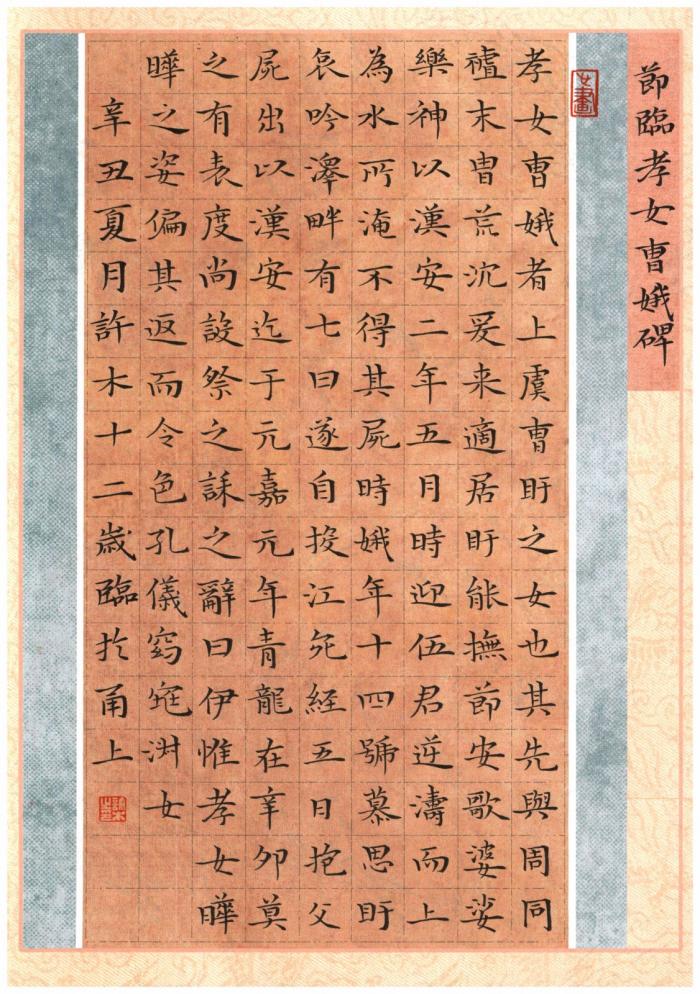 節臨孝女曹娥碑
孝女曹娥者上虞曹盱之女也其先與周同
末冑荒沉爰来適居盱能撫節安歌婆娑
樂神以漢安二年五月時迎伍君逆濤而上
為水所淹不得其屍時娥年十四號慕思盱
哀吟澤畔有七日遂自投江死經五日抱父
屍出以漢安迄于元嘉元年青龍在辛卯莫
之有表度尚設祭之誄之辭曰伊惟孝女曄
曄之姿偏其返而令色孔儀窈窕淑女
辛丑夏月許木十二歲臨於甬上